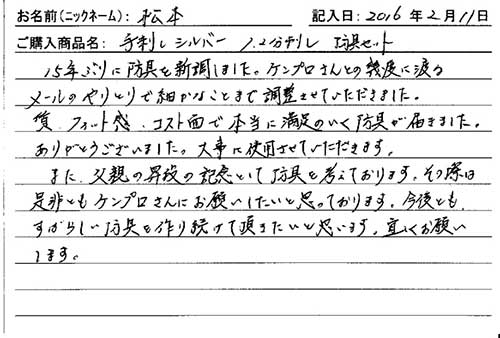 お名前(ニックネーム): 松本 記入日: 2016年2月11日
ご購入商品名: 手刺しシルバー 1.2分刺し 防具セット
15年ぶりに防具を新調しました。ケンプロさんとの幾度に渡る
メールのやりとりで細かなことまで調整させていただきました。
質、フィット感、コスト面で本当に満足のいく防具が届きました。
ありがとうございました。大事に使用させていただきます。
また、父親の昇段の記念として防具を考えております。その際は
是非ともケンプロさんにお願いしたいと思っております。今後とも、
すばらしい防具を作り続けて頂きたいと思います。宜しくお願い
します。